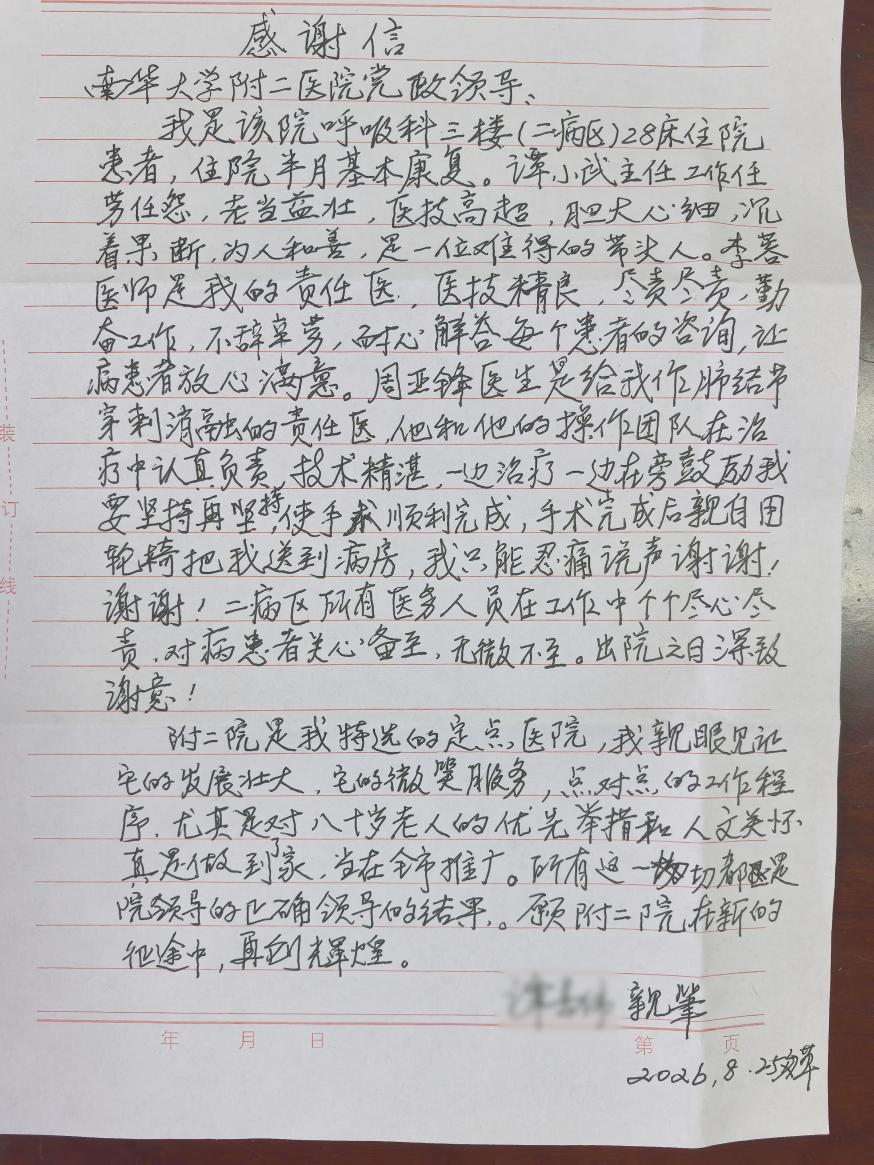 感谢信
南华大学附二医院党政领导、
我是该院呼吸科三楼(二病区)28床住院
患者，住院半月基本康复。谭小武主任工作任
劳任怨，老当益壮，医技高超，胆大心细，沉
着果断，为人和善，是一位难得的带头人。李蓉
医师是我的责任医，医技精良，尽责尽责，勤
奋工作，不辞辛劳，耐心解答每个患者的咨询，让
病患者放心满意。周亚锋医生是给我作肺结节
穿刺消融的责任医，他和他的操作团队在治
疗中认真负责，技术精湛，一边治疗一边在旁鼓励我
要坚持再坚持，使手术顺利完成，手术完成后亲自用
轮椅把我送到病房，我只能忍痛说声谢谢！
谢谢！二病区所有医务人员在工作中个个尽心尽
责，对病患者关心备至，无微不至。出院之日深致
谢意！
附二院是我特选的定点医院，我亲眼见证
它的发展壮大，它的微笑服务，点对点的工作程
序，尤其是对八十岁老人的优先举措和人文关怀
真是做到了家，当在全市推广。所有这一切都是
院领导的正确领导的结果。愿附二院在新的
征途中，再创辉煌。
亲笔
年 月 日
第 页
2026,8.25
装
订
线